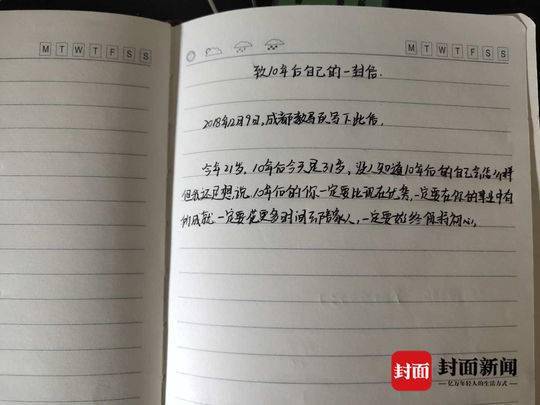 M T W T F S S
M T W T F S S
致10年后自己的一封信.
2018年12月9日,成都敖写下此信.
今年21岁,10年后今天是31岁,没人知道10年后的自己会怎么样
但我还是想说,10年后的你一定要比现在优秀,一定要在你的事业中有
所成就.一定要花更多时间去陪家人,一定要始终保持初心.
封面
封面新闻
亿万年轻人的生活方式